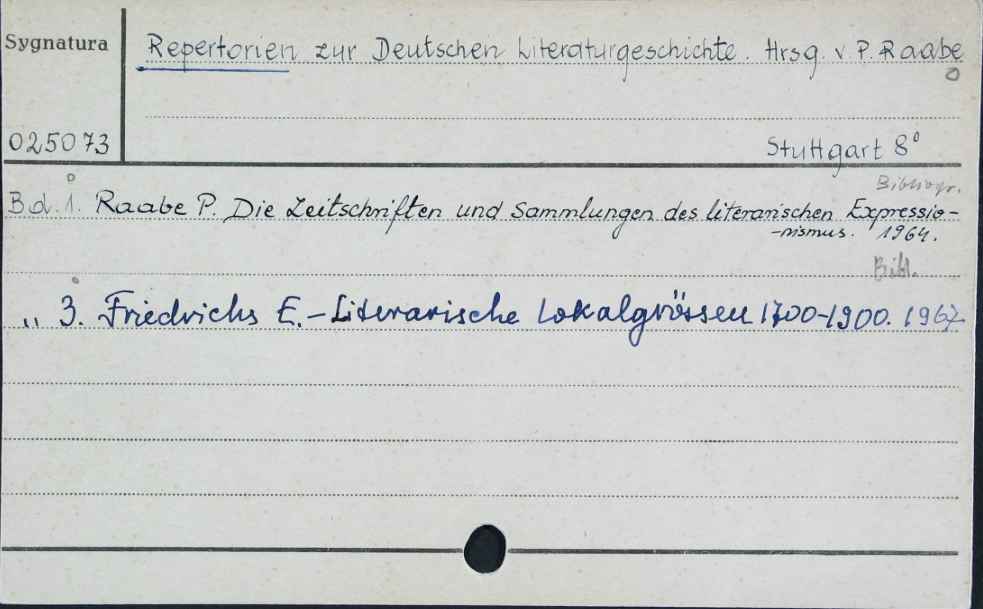 Sygnatura
Repertorien zur Deutschen Literaturgeschichte. Hrsg. v P. Raabe
025073
Stuttgart 8°
Bibliogr.
Bd. 1. Raabe P. Die Zeitschriften und Sammlungen des literarischen Expressio-
-nismus. 1964.
Bibl.
„ 3. Friedrichs E. - Literarische Lokalgrössen 1700-1900. 1967